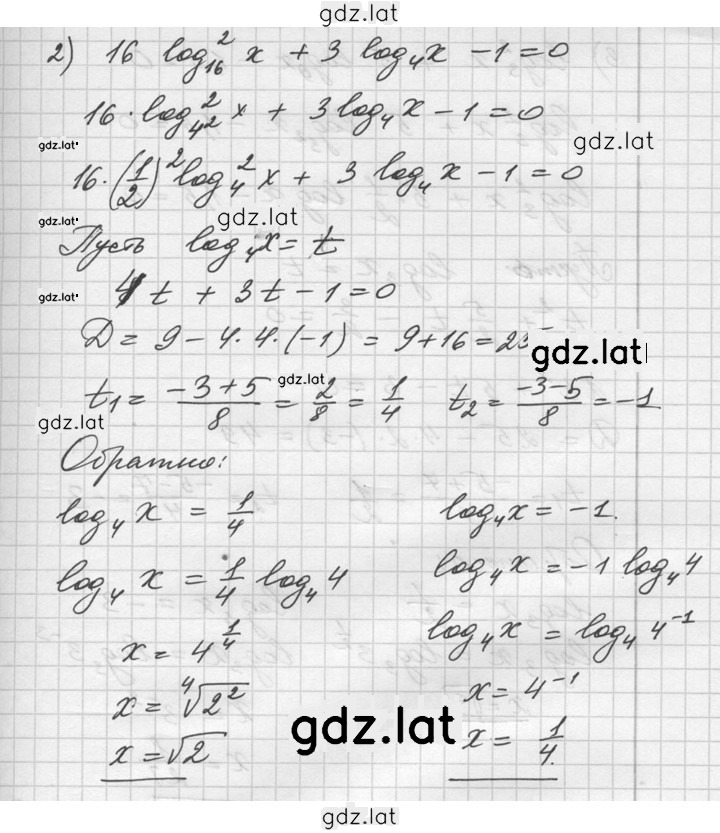 gdz.lat
2) 16 log²₁₆ x + 3 log₄x − 1 = 0
16 · log²₄² x + 3 log₄x − 1 = 0
gdz.lat
gdz.lat
16 · (1/2)² log²₄ x + 3 log₄ x − 1 = 0
gdz.lat
gdz.lat
Пусть log₄x = t
gdz.lat
4t + 3t − 1 = 0
D = 9 − 4·4·(−1) = 9 + 16 = 25
gdz.lat
t₁ = (−3+5)/8 = 2/8 = 1/4 t₂ = (−3−5)/8 = −1
gdz.lat
gdz.lat
Обратно:
log₄ x = 1/4 log₄x = −1.
log₄ x = 1/4 log₄ 4 log₄ x = −1 log₄ 4
x = 4^(1/4) log₄ x = log₄ 4⁻¹
x = ⁴√2² x = 4⁻¹
x = √2 x = 1/4.
gdz.lat
gdz.lat